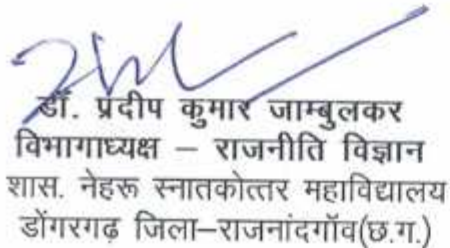 डॉ. प्रदीप कुमार जाम्बुलकर
विभागाध्यक्ष – राजनीति विज्ञान
शास. नेहरू स्नातकोत्तर महाविद्यालय
डोंगरगढ़ जिला–राजनांदगॉव(छ.ग.)